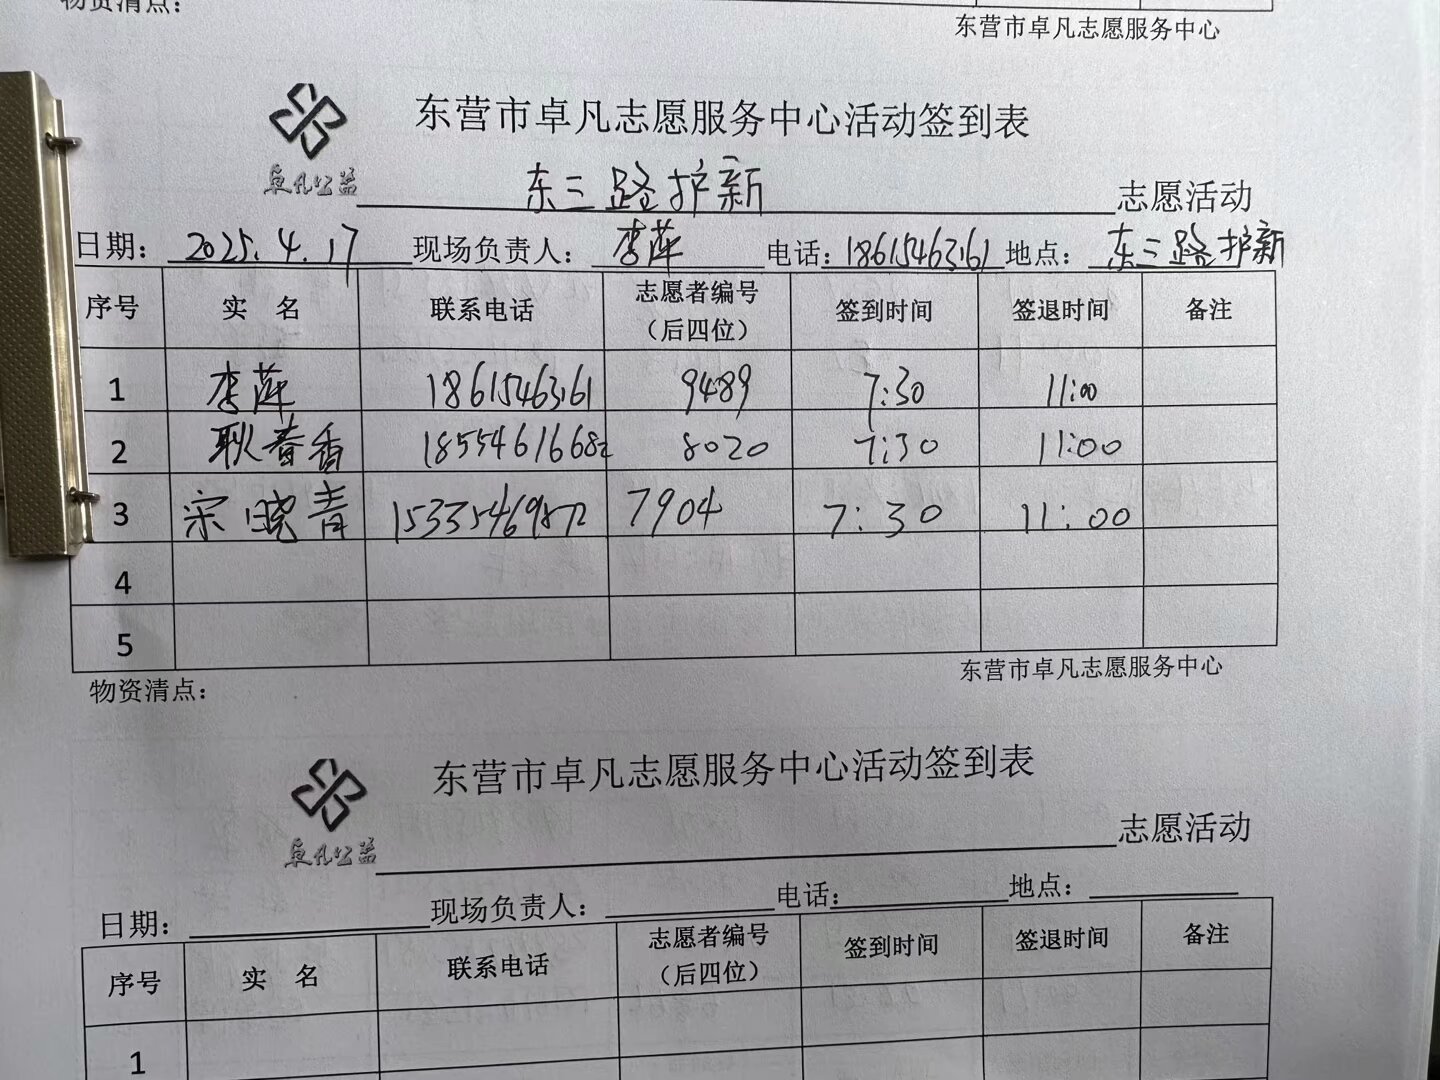 物资清点：
东营市卓凡志愿服务中心
东营市卓凡志愿服务中心活动签到表
卓凡公益
东三路护新 志愿活动
日期：2025.4.17 现场负责人：李萍 电话：18615463161 地点：东三路护新
序号 实 名 联系电话 志愿者编号（后四位） 签到时间 签退时间 备注
1 李萍 18615463161 9489 7:30 11:00
2 耿春香 18554616682 8020 7:30 11:00
3 宋晓青 15335469872 7904 7:30 11:00
4
5
物资清点：
东营市卓凡志愿服务中心
东营市卓凡志愿服务中心活动签到表
卓凡公益
志愿活动
日期： 现场负责人： 电话： 地点：
序号 实 名 联系电话 志愿者编号（后四位） 签到时间 签退时间 备注
1